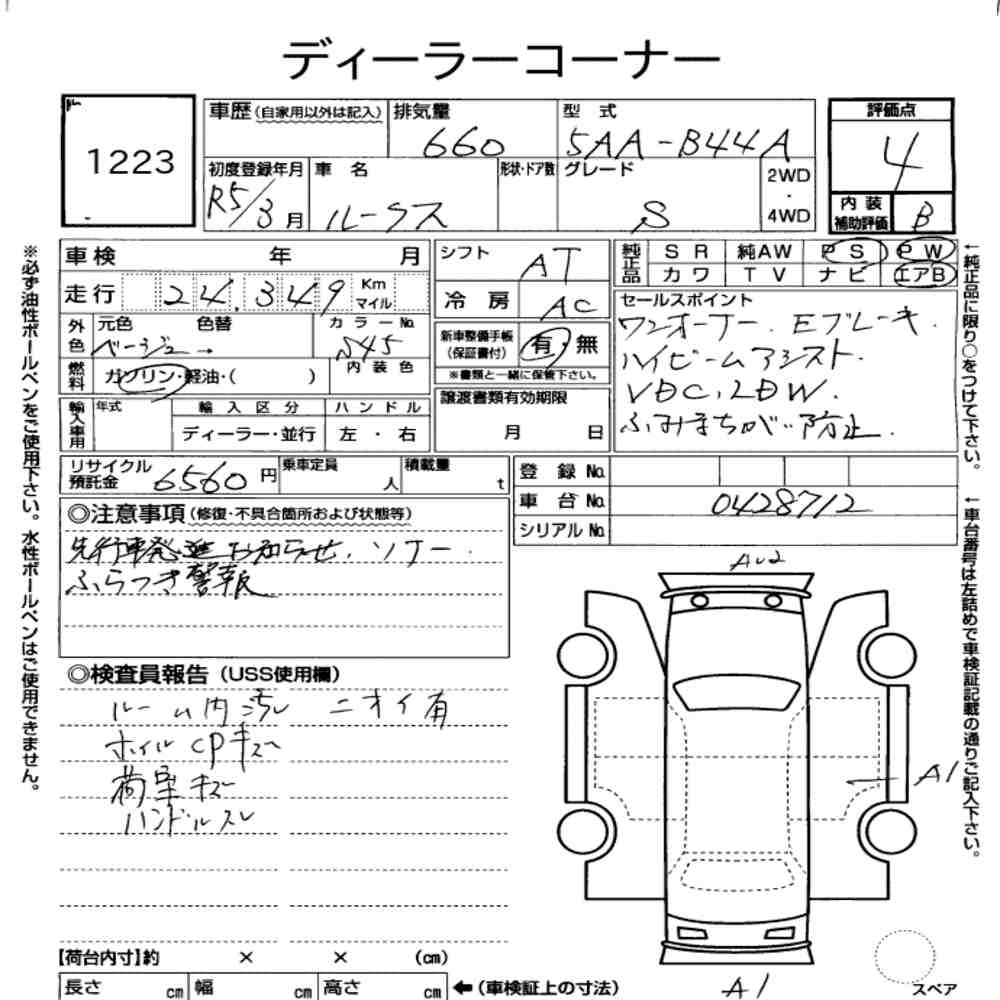 ディーラーコーナー
1223
車歴（自家用以外は記入） 排気量 660 型式 5AA-B44A
評価点 4
初度登録年月 R5/3月 車名 ルークス 形状・ドア数 グレード S 2WD・4WD
内装補助評価 B
車検 年 月
走行 24,349 Km マイル
外色 元色 ベージュ→ 色替 カラーNo. S45
燃料 ガソリン・軽油・( ) 内装色
輸入車用 年式 輸入区分 ハンドル
ディーラー・並行 左・右
シフト AT
冷房 AC
新車整備手帳（保証書付） 有・無
※書類と一緒に保管下さい。
譲渡書類有効期限
月 日
純正品 SR 純AW PS PW
カワ TV ナビ エアB
セールスポイント
ワンオーナー. Eブレーキ.
ハイビームアシスト.
VDC, LDW.
ふみまちがい防止.
リサイクル預託金 6560円 乗車定員 人 積載量 t
登録No.
車台No. 0428712
シリアルNo.
◎注意事項（修復・不具合箇所および状態等）
先行車発進お知らせ. ソナー.
ふらつき警報
◎検査員報告（USS使用欄）
ルーム内汚レ ニオイ有
ホイルCPキズ
荷室キズ
ハンドルスレ
【荷台内寸】約 × × (cm)
長さ cm 幅 cm 高さ cm ←（車検証上の寸法）
A1
A1
スペア
※必ず油性ボールペンをご使用下さい。水性ボールペンはご使用できません。
←純正品に限り○をつけて下さい。
←車台番号は左詰めで車検証記載の通りご記入下さい。